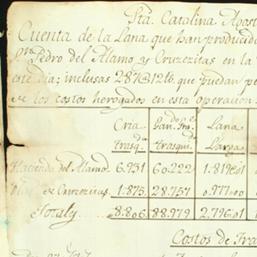 Sta. Catarina Apost
Cuenta de la Lana que han producido
Sn. Pedro del Alamo y Cruzezitas en la
este dia; inclusas 287@12lb. que quedan pe
de los costos herogados en esta operacion
Cria Trasqa. Gando. Trasqa. Lana Larga
Hacienda del Alamo 6.931 60.222 1.819.01
de Cruzezitas 1.875 28.757 0.977.00
Totals 8.806 88.979 2.796.01
Costos de Tra